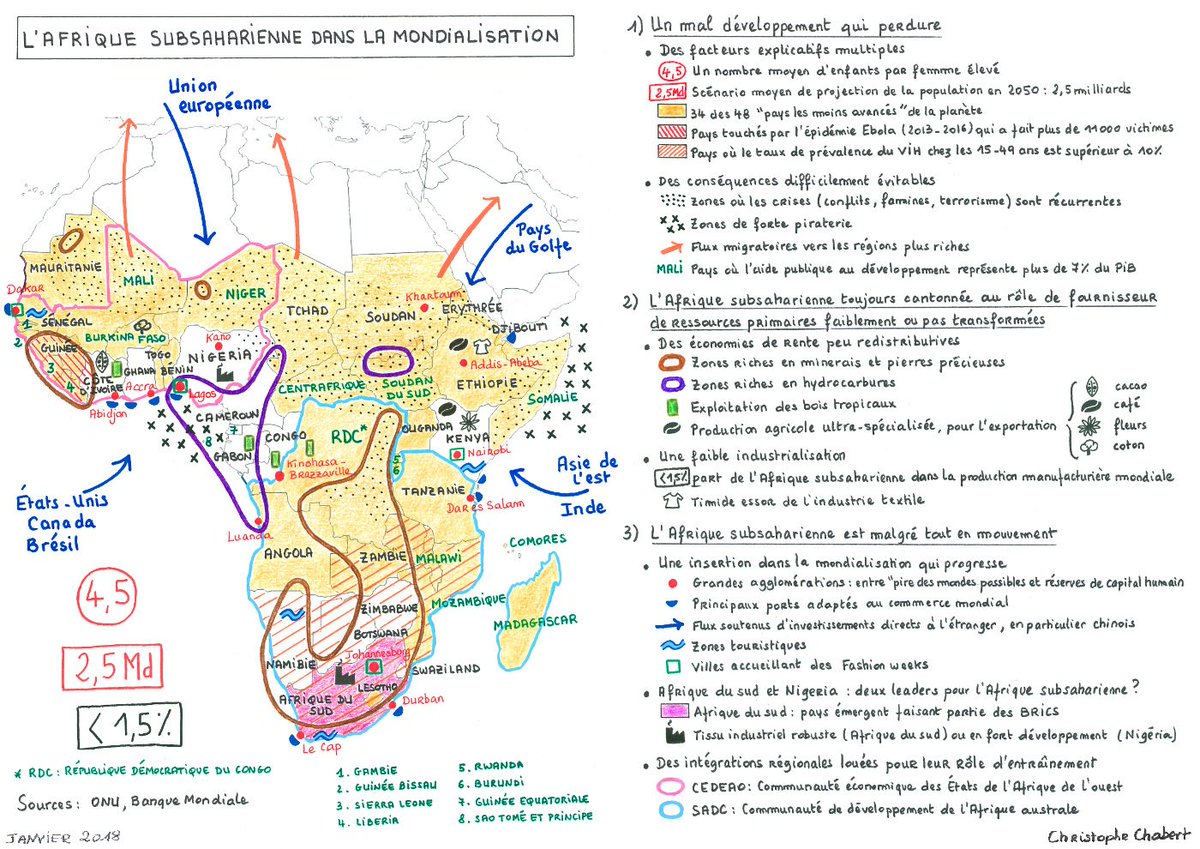 L'AFRIQUE SUBSAHARIENNE DANS LA MONDIALISATION
Union
européenne
Pays
du Golfe
MAURITANIE
MALI
NIGER
TCHAD
SOUDAN
Khartoum
ERYTHRÉE
DJIBOUTI
Dakar
SÉNÉGAL
1
2
BURKINA
FASO
GUINÉE
3
4
CÔTE
D'IVOIRE
TOGO
GHANA
BÉNIN
Accra
Abidjan
Kano
NIGERIA
Lagos
CENTRAFRIQUE
SOUDAN
DU SUD
Addis-Abeba
ETHIOPIE
SOMALIE
CAMEROUN
7
8
CONGO
GABON
RDC*
OUGANDA
KENYA
Nairobi
5
6
Kinshasa-
Brazzaville
TANZANIE
Dar es Salam
Asie de
l'est
Inde
États-Unis
Canada
Brésil
Luanda
ANGOLA
ZAMBIE
MALAWI
COMORES
MOZAMBIQUE
MADAGASCAR
ZIMBABWE
BOTSWANA
NAMIBIE
Johannesburg
SWAZILAND
LESOTHO
AFRIQUE DU
SUD
Durban
Le Cap
4,5
2,5 Md
< 1,5%
* RDC : RÉPUBLIQUE DÉMOCRATIQUE DU CONGO
Sources : ONU, Banque Mondiale
1. GAMBIE
2. GUINÉE BISSAU
3. SIERRA LEONE
4. LIBERIA
5. RWANDA
6. BURUNDI
7. GUINÉE EQUATORIALE
8. SAO TOMÉ ET PRINCIPE
JANVIER 2018
1) Un mal développement qui perdure
• Des facteurs explicatifs multiples
4,5 Un nombre moyen d'enfants par femme élevé
2,5 Md Scénario moyen de projection de la population en 2050 : 2,5 milliards
34 des 48 "pays les moins avancés" de la planète
Pays touchés par l'épidémie Ebola (2013-2016) qui a fait plus de 11000 victimes
Pays où le taux de prévalence du VIH chez les 15-49 ans est supérieur à 10%
• Des conséquences difficilement évitables
Zones où les crises (conflits, famines, terrorisme) sont récurrentes
Zones de forte piraterie
Flux migratoires vers les régions plus riches
MALI Pays où l'aide publique au développement représente plus de 7% du PiB
2) L'Afrique subsaharienne toujours cantonnée au rôle de fournisseur
de ressources primaires faiblement ou pas transformées
• Des économies de rente peu redistributives
Zones riches en minerais et pierres précieuses
Zones riches en hydrocarbures
Exploitation des bois tropicaux
Production agricole ultra-spécialisée, pour l'exportation
cacao
café
fleurs
coton
• Une faible industrialisation
<1,5% part de l'Afrique subsaharienne dans la production manufacturière mondiale
Timide essor de l'industrie textile
3) L'Afrique subsaharienne est malgré tout en mouvement
• Une insertion dans la mondialisation qui progresse
Grandes agglomérations : entre "pire des mondes possibles et réserves de capital humain
Principaux ports adaptés au commerce mondial
Flux soutenus d'investissements directs à l'étranger, en particulier chinois
Zones touristiques
Villes accueillant des Fashion weeks
• Afrique du sud et Nigeria : deux leaders pour l'Afrique subsaharienne ?
Afrique du sud : pays émergent faisant partie des BRICS
Tissu industriel robuste (Afrique du sud) ou en fort développement (Nigéria)
• Des intégrations régionales louées pour leur rôle d'entraînement
CEDEAO : Communauté économique des États de l'Afrique de l'ouest
SADC : Communauté de développement de l'Afrique australe
Christophe Chabert